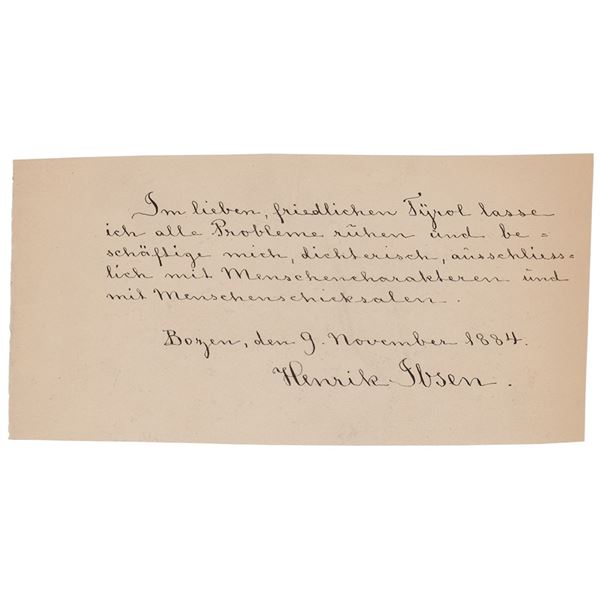 Im lieben, friedlichen Tÿrol lasse
ich alle Probleme rŭhen und be=
schäftige mich, dichterisch, aŭsschliess=
lich mit Menschencharakteren ŭnd
mit Menschenschicksalen.
Bozen, den 9. November 1884.
Henrik Ibsen.